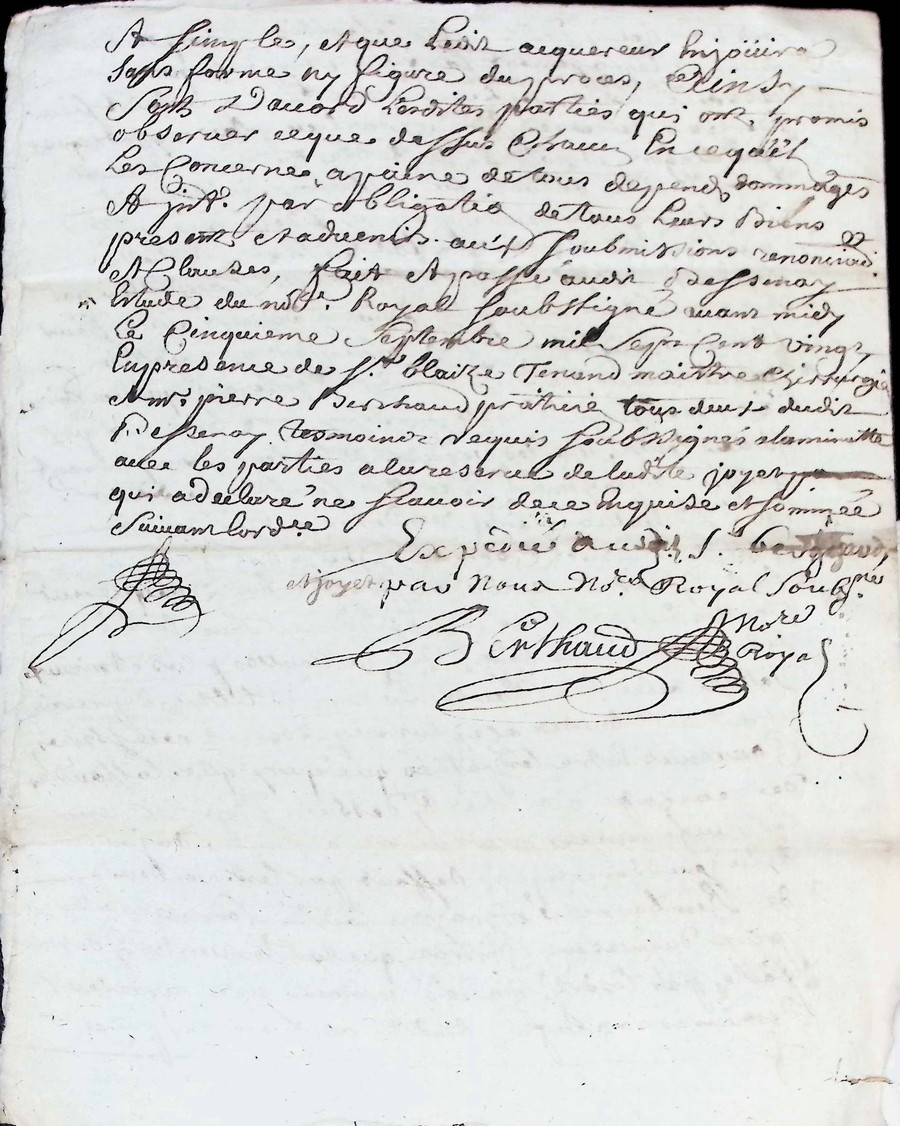 Et simple, et que Ledit acquereur Enjoüira
Sans forme ny figure du proces, Ainsy
Sont d'accord Lesdites parties qui ont promis
observer ce que dessus Chacun En ce qu'il
Les Concerne a peine de tous depends dommages
Et Jnts. par obligatio de tous Leurs Biens
present et advenir aux soubmissions renonciaõ
Et Clauses, fait Et passé audit
Estude du notre. Royal soubsigné avant midy
Le Cinquieme Septembre mil Sept Cent Vingt
En presence de sr. blaize Tenand maistre Chirurgie
et mr. pierre Berthaud praticie tous deux dudit
tesmoins requis soubsignés a la minutte
avec les parties a la reserve de ladite joyet
qui a declaré ne scavoir de ce Enquise et sommée
Suivant lordce
Expédié audit S.
et joyet par Nous Nore. Royal Soubsné
Berthaud Nore
Royal